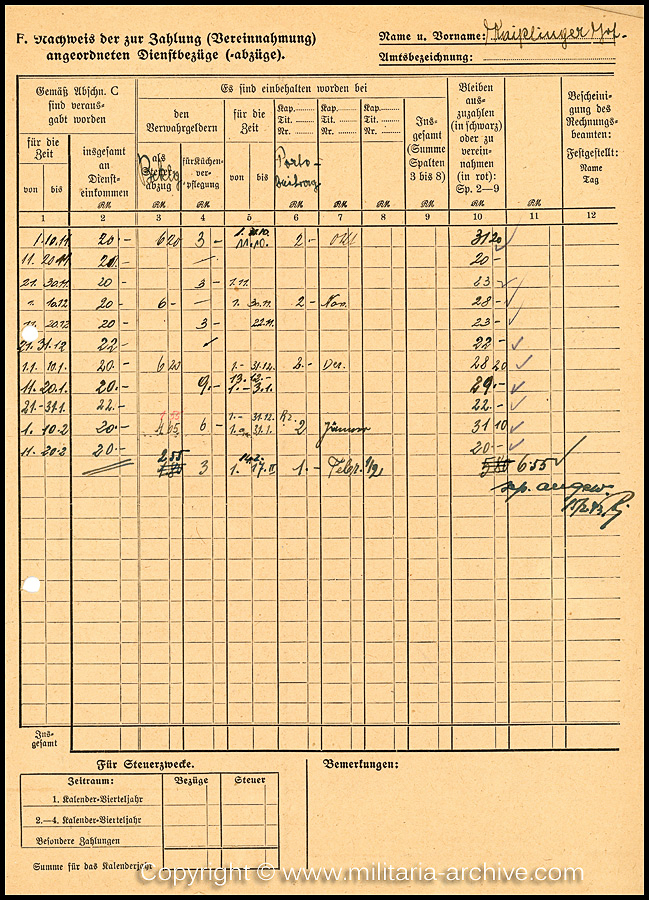 F. Nachweis der zur Zahlung (Vereinnahmung)
angeordneten Dienstbezüge (-abzüge).
Name u. Vorname: Kaiplinger Jos.
Amtsbezeichnung:
Gemäß Abschn. C
sind veraus-
gabt worden
für die
Zeit
von bis
insgesamt
an
Dienst-
einkommen
RM
Es sind einbehalten worden bei
den
Verwahrgeldern
als
abzug
RM
für Küchen-
ver-
pflegung
RM
für die
Zeit
von bis
Kap.
Tit.
Nr.
Porto-
beitrag
RM
Kap.
Tit.
Nr.
RM
Kap.
Tit.
Nr.
RM
Ins-
gesamt
(Summe
Spalten
3 bis 8)
RM
Bleiben
aus-
zuzahlen
(in schwarz)
oder zu
verein-
nahmen
(in rot):
Sp. 2—9
RM
RM
Bescheini-
gung des
Rechnungs-
beamten:
Festgestellt:
Name
Tag
1 2 3 4 5 6 7 8 9 10 11 12
1. 10.11. 20.- 6 20 3 - 11.10. 2 - Okt 31 20
11. 20.11 20.- 20 -
21. 30.11 20 - 3 - 1.11. 23
1. 10.12 20 - 6 - 1. 30.11. 2 - Nov. 28 -
11. 20.12 20 - 3 - 22.11. 23 -
21. 31.12 22 - 22 -
1.1. 10.1. 20.- 6 20 1.- 31.12. 2.- Dez. 28 20
11. 20.1. 20.- 9.- 13.12.- 1.- 3.1. 29.-
21.- 31.1. 22.- 22.-
1. 10.2 20.- 4 65 6 - 1.- 31.12. 31.1. 2 Jänner 31 10
11. 20.2 20.- 20 -
2,55 3 14.2. 1. 17.II 1.- Febr. 6 55
sep. angew.
Ins-
gesamt
Für Steuerzwecke.
Zeitraum: Bezüge Steuer
1. Kalender-Vierteljahr
2.—4. Kalender-Vierteljahr
Besondere Zahlungen
Summe für das Kalenderjahr
Bemerkungen:
Copyright © www.militaria-archive.com